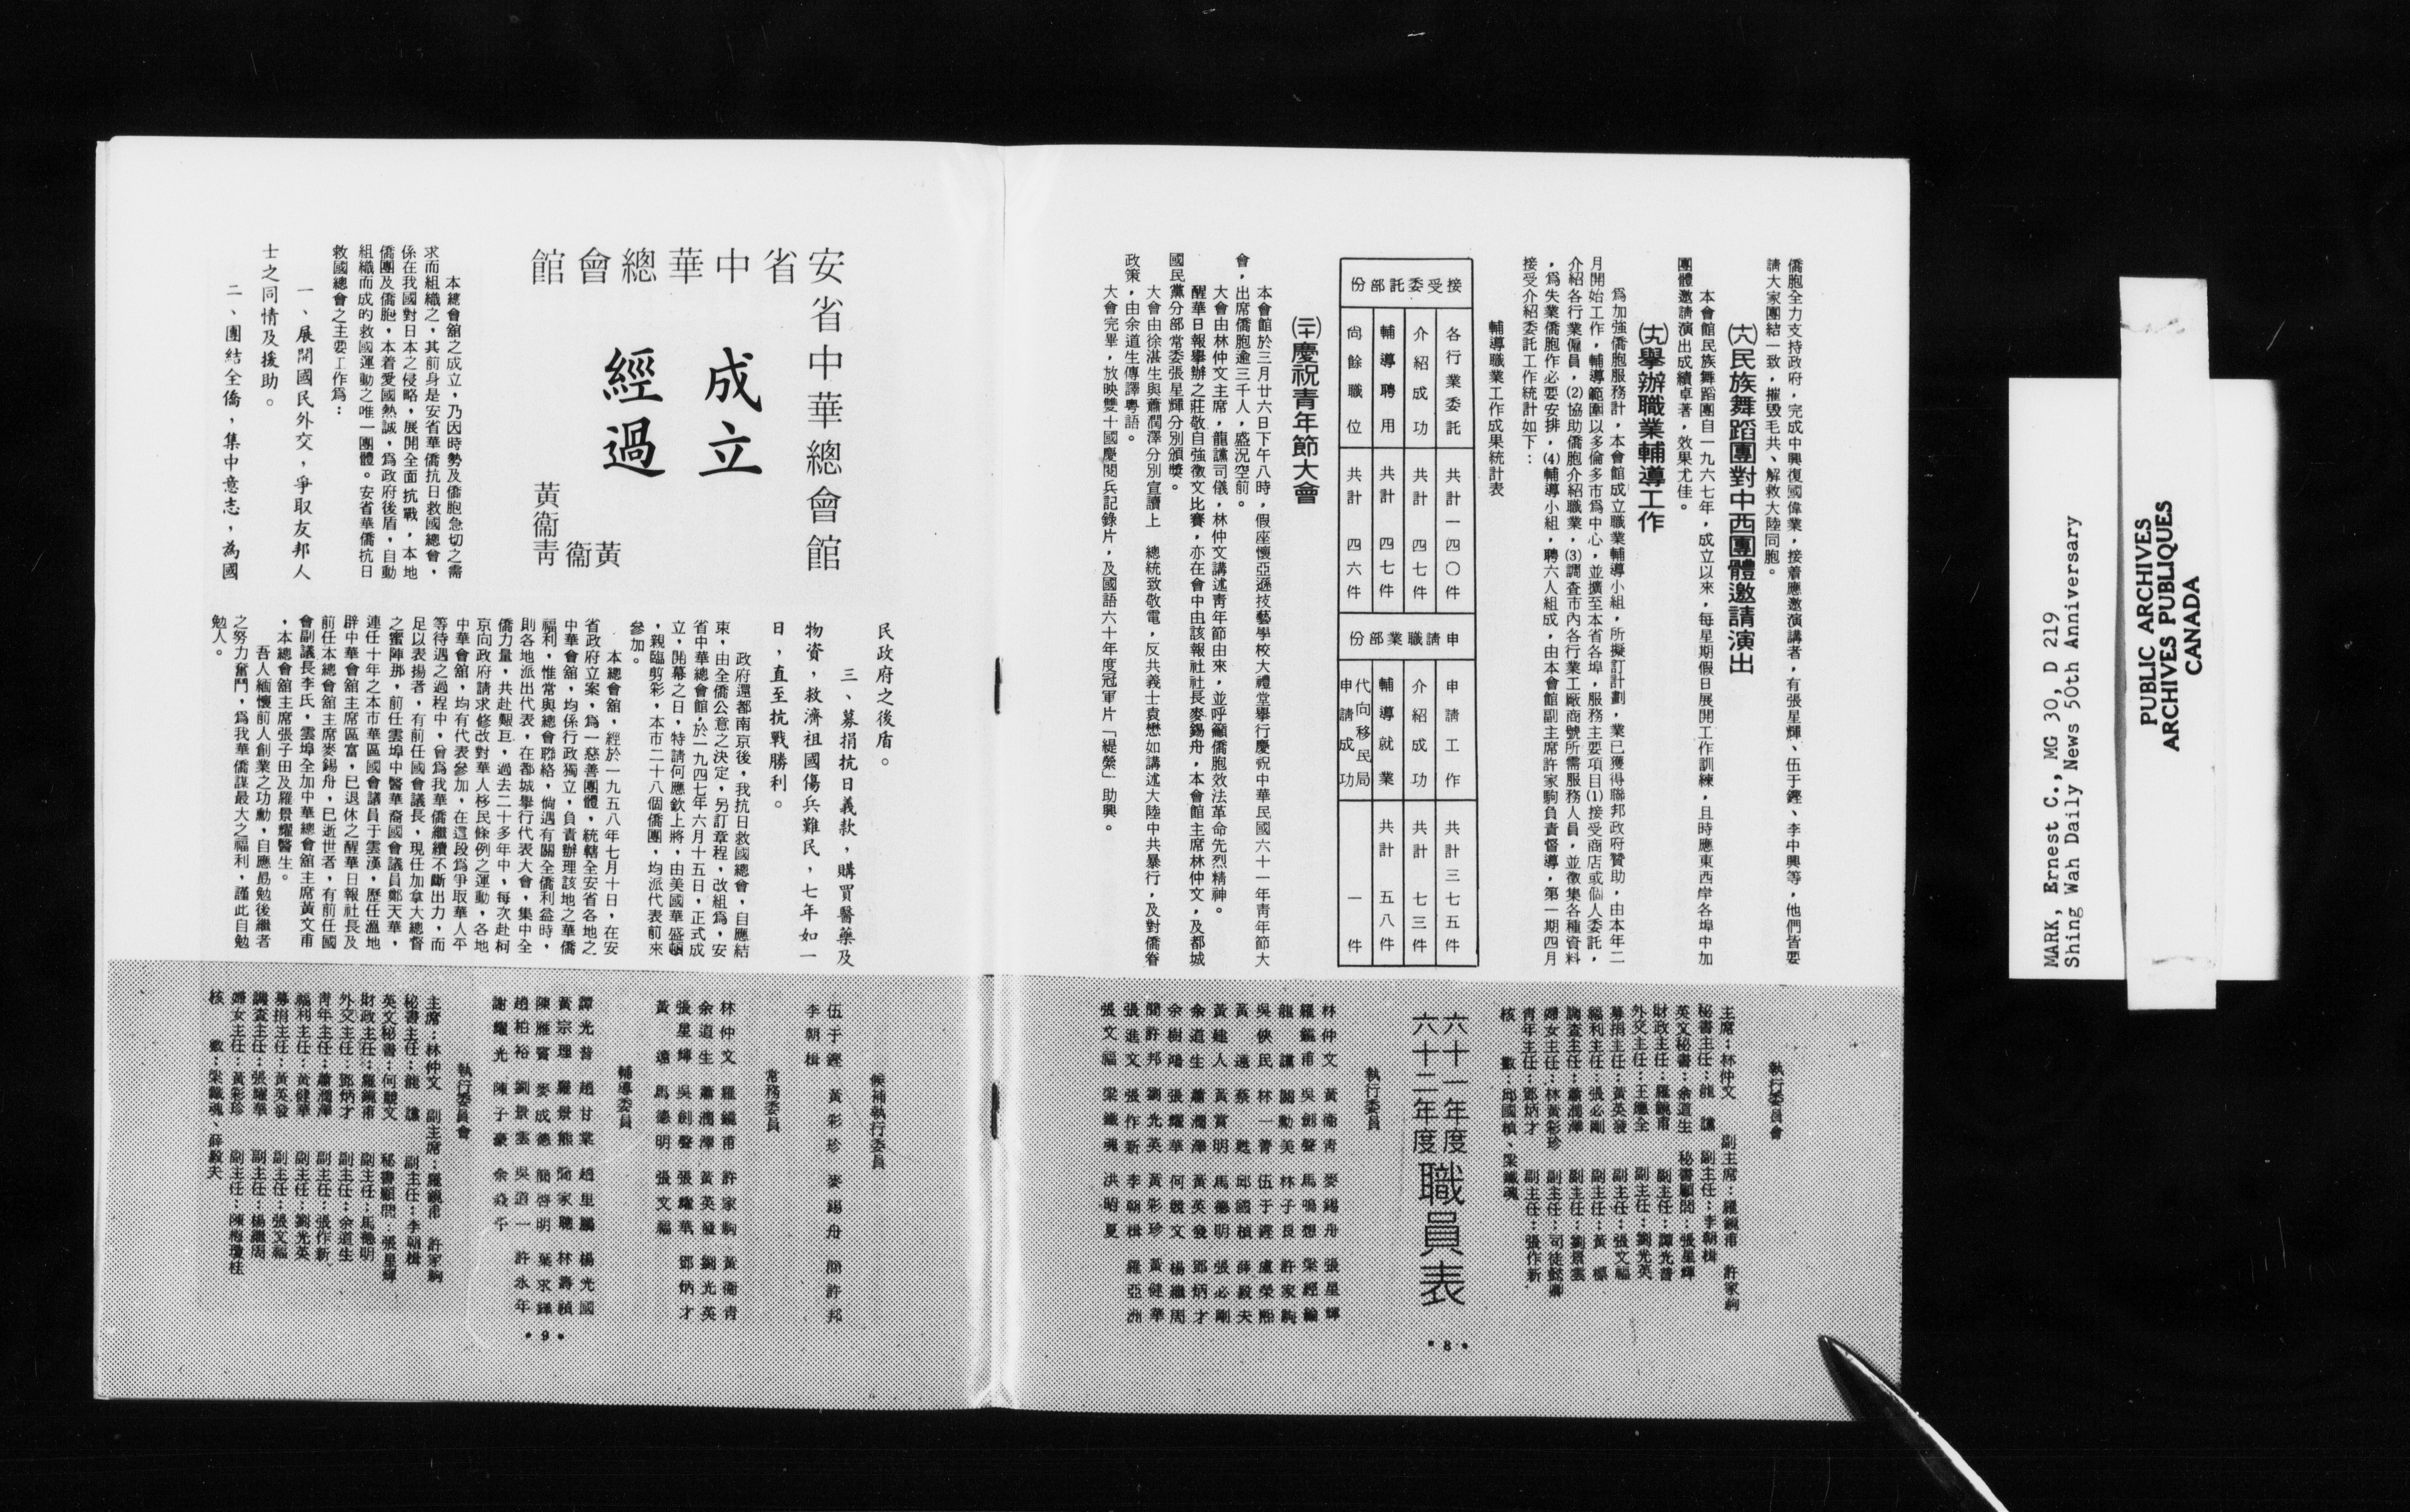 僑胞全力支持政府，完成中興復國偉業，接着應邀演講者，有張星輝、伍于鏗、李中興等，他們皆要
請大家團結一致，摧毀毛共、解救大陸同胞。
㈩八民族舞蹈團對中西團體邀請演出
本會館民族舞蹈團自一九六七年，成立以來，每星期假日展開工作訓練，且時應東西岸各埠中加
團體邀請演出成績卓著，效果尤佳。
㈩九舉辦職業輔導工作
爲加強僑胞服務計，本會館成立職業輔導小組，所擬訂計劃，業已獲得聯邦政府贊助，由本年二
月開始工作，輔導範圍以多倫多市爲中心，並擴至本省各埠，服務主要項目⑴接受商店或個人委託，
介紹各行業僱員，⑵協助僑胞介紹職業，⑶調查市內各行業工廠商號所需服務人員，並徵集各種資料
，爲失業僑胞作必要安排，⑷輔導小組，聘六人組成，由本會館副主席許家駒負責督導，第一期四月
接受介紹委託工作統計如下：
輔導職業工作成果統計表
接受委託部份
各行業委託 共計一四〇件
介紹成功 共計四七件
輔導聘用 共計四七件
尚餘職位 共計四六件
申請職業部份
申請工作 共計三七五件
介紹成功 共計七三件
輔導就業 共計五八件
代向移民局申請成功 一件
㈡十慶祝青年節大會
本會館於三月廿六日下午八時，假座懷亞遜技藝學校大禮堂舉行慶祝中華民國六十一年青年節大
會，出席僑胞逾三千人，盛況空前。
大會由林仲文主席，龍讜司儀，林仲文講述青年節由來，並呼籲僑胞效法革命先烈精神。
醒華日報舉辦之莊敬自強徵文比賽，亦在會中由該報社社長麥錫舟，本會館主席林仲文，及都城
國民黨分部常委張星輝分別頒獎。
大會由徐湛生與蕭潤澤分別宣讀上　總統致敬電，反共義士袁懋如講述大陸中共暴行，及對僑眷
政策，由余道生傳譯粵語。
大會完畢，放映雙十國慶閱兵記錄片，及國語六十年度冠軍片「緹縈」助興。
執行委員會
主席：林仲文　副主席：羅鏡甫　許家駒
秘書主任：龍　讜　副主任：李朝楫
英文秘書：余道生　秘書顧問：張星輝
財政主任：羅鏡甫　副主任：譚光普
外交主任：王應全　副主任：劉光英
募捐主任：黃英發　副主任：張文福
福利主任：張必剛　副主任：黃
調查主任：蕭潤澤　副主任：劉景雲
婦女主任：林黃彩珍　副主任：司徒懿卿
青年主任：鄧炳才　副主任：張作新
核　　數：邱國楨、梁鐵魂
六十一年度
六十二年度 職員表
執行委員
林仲文　黃衞青　麥錫舟　張星輝
羅鏡甫　吳劍聲　馬鳴想　梁經綸
龍　讜　關勳美　林子良　許家駒
吳俠民　林一菁　伍于鏗　盧榮熙
黃　遠　蔡　甦　邱國楨　薛毅夫
黃建人　黃實明　馬德明　張必剛
余道生　蕭潤澤　黃英發　鄧炳才
余樹鴻　張耀華　何競文　楊繼周
簡許邦　劉光英　黃彩珍　黃健華
張進文　張作新　李朝楫　羅亞洲
張文福　梁鐵魂　洪昭夏
•8•
安省中華總會館
安省中華總會館
成立
經過
黃衞青
黃衞
本總會舘之成立，乃因時勢及僑胞急切之需
求而組織之，其前身是安省華僑抗日救國總會，
係在我國對日本之侵略，展開全面抗戰，本地
僑團及僑胞，本着愛國熱誠，爲政府後盾，自動
組織而成的救國運動之唯一團體。安省華僑抗日
救國總會之主要工作爲：
一、展開國民外交，爭取友邦人
士之同情及援助。
二、團結全僑，集中意志，為國
民政府之後盾。
三、募捐抗日義款，購買醫藥及
物資，救濟祖國傷兵難民，七年如一
日，直至抗戰勝利。
政府還都南京後，我抗日救國總會，自應結
束，由全僑公意之決定，另訂章程，改組爲，安
省中華總會館，於一九四七年六月十五日，正式成
立，開幕之日，特請何應欽上將，由美國華盛頓
，親臨剪彩，本市二十八個僑團，均派代表前來
參加。
本總會舘，經於一九五八年七月十日，在安
省政府立案，爲一慈善團體，統轄全安省各地之
中華會舘，均係行政獨立，負責辦理該地之華僑
福利，惟常與總會聯絡，倘遇有關全僑利益時，
則各地派出代表，在都城舉行代表大會，集中全
僑力量，共赴艱巨，過去二十多年中，每次赴柯
京向政府請求修改對華人移民條例之運動，各地
中華會舘，均有代表參加，在這段爲爭取華人平
等待遇之過程中，曾爲我華僑繼續不斷出力，而
足以表揚者，有前任國會議長，現任加拿大總督
之蜜陣那，前任雲埠中醫華裔國會議員鄭天華，
連任十年之本市華區國會議員于雲漢，歷任溫地
辟中華會舘主席區富，已退休之醒華日報社長及
前任本總會舘主席麥錫舟，已逝世者，有前任國
會副議長李氏，雲埠全加中華總會舘主席黃文甫
，本總會舘主席張子田及羅景耀醫生。
吾人緬懷前人創業之功勳，自應勗勉後繼者
之努力奮鬥，爲我華僑謀最大之福利，謹此自勉
勉人。
候補執行委員
伍于鏗　黃彩珍　麥錫舟　簡許邦
李朝楫
常務委員
林仲文　羅鏡甫　許家駒　黃衞青
余道生　蕭潤澤　黃英發　劉光英
張星輝　吳劍聲　張耀華　鄧炳才
黃　遠　馬德明　張文福
輔導委員
譚光普　趙甘棠　趙里鵬　楊光國
黃宗理　羅景熊　簡家聰　林壽楨
陳雁賓　麥成德　簡啓明　葉求鐸
趙柏裕　劉景雲　吳道一　許永年
謝耀光　陳子豪　余焱午
執行委員會
主席：林仲文　副主席：羅鏡甫　許家駒
秘書主任：龍　讜　副主任：李朝楫
英文秘書：何競文　秘書顧問：張星輝
財政主任：羅鏡甫　副主任：馬德明
外交主任：鄧炳才　副主任：余道生
青年主任：蕭潤澤　副主任：張作新
福利主任：黃健華　副主任：劉光英
募捐主任：黃英發　副主任：張文福
調查主任：張耀華　副主任：楊繼周
婦女主任：黃彩珍　副主任：陳梅瓊桂
核　　數：梁鐵魂、薛毅夫
•9•
MARK, Ernest C., MG 30, D 219
Shing Wah Daily News 50th Anniversary
PUBLIC ARCHIVES
ARCHIVES PUBLIQUES
CANADA